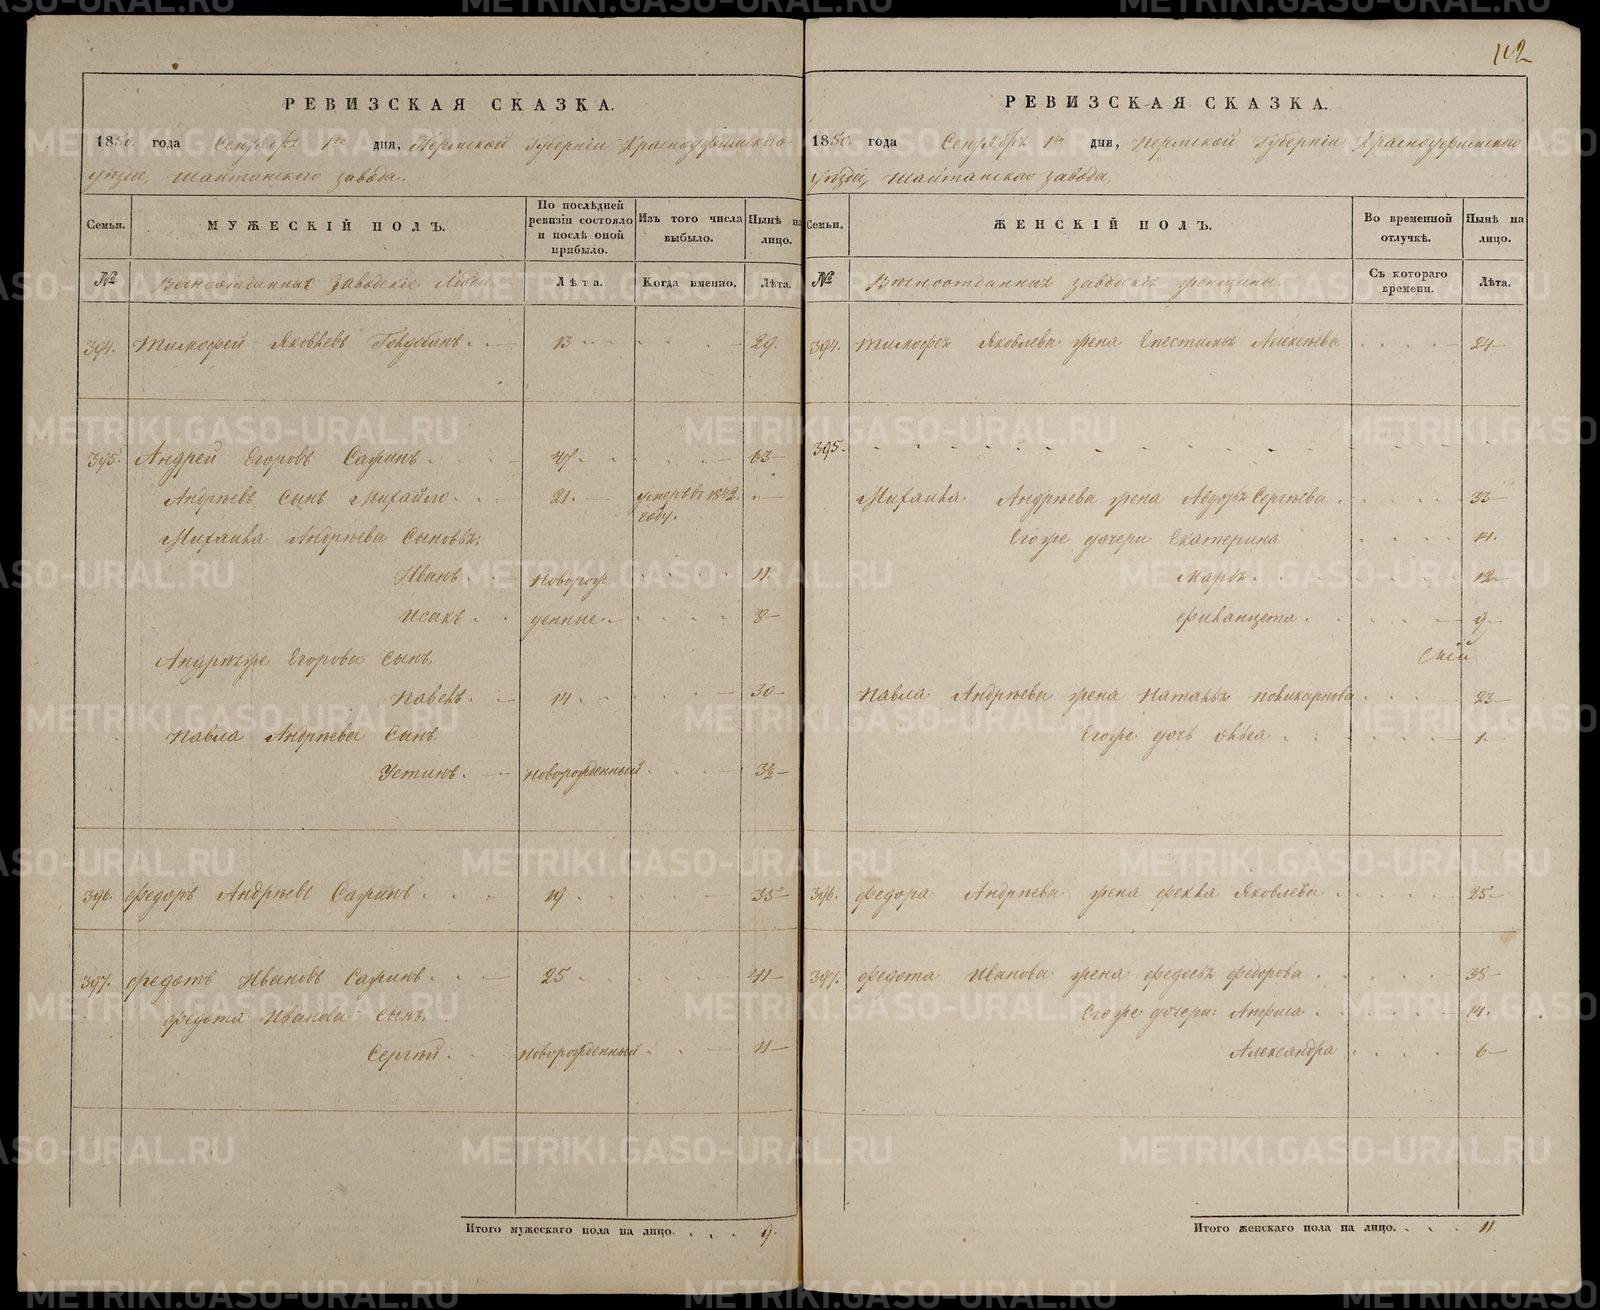 112
РЕВИЗСКАЯ СКАЗКА.
1850. года Сентября 1го дня, Пермской Губерніи Красноуфимскаго
уѣзда, Шайтанскаго завода.
Семьи.
МУЖЕСКІЙ ПОЛЪ.
По послѣдней ревизіи состояло и послѣ оной прибыло.
Изъ того числа выбыло.
Нынѣ на лицо.
№
заводскіе люди
Лѣта.
Когда именно.
Лѣта.
394. Тимофей Яковлевъ 13 29.
395. Андрей Егоровъ Сапинъ 47 63
Андрѣевъ сынъ Михайло. 21. умеръ въ 1842
году.
Михаила Андрѣева сыновья:
Иванъ новорож 11.
Исакъ денные 8
Андрея же Егорова сынъ
Павелъ. 14 30
Павла Андрѣева сынъ
Устинъ. новорожденный 3½
396. Федоръ Андрѣевъ Сапинъ 19 35
397. Федотъ Ивановъ Сапинъ 25 41
Федота Иванова сынъ
Сергѣй. новорожденный 11
Итого мужескаго пола на лицо. . . . 9.
РЕВИЗСКАЯ СКАЗКА.
1850. года Сентября 1го дня, Пермской Губерніи Красноуфимскаго
уѣзда, Шайтанскаго завода,
Семьи.
ЖЕНСКІЙ ПОЛЪ.
Во временной отлучкѣ.
Нынѣ на лицо.
№
заводскія женщины
Съ котораго времени.
Лѣта.
394. Тимофея Яковлева жена Епестимья Алексѣева 24
395.
Михаила Андрѣева жена Ѳедора Сергѣева 33
Его же дочери Екатерина 14.
Марья 12
9
Павла Андрѣева жена Наталья Поликарпова 23
Его же дочь 1.
396. Федора Андрѣева жена Фекла Яковлева 25
397. Федота Иванова жена Федосья Федорова 38
Его же дочери: Анфиса 14.
Александра 6
Итого женскаго пола на лицо. . . . 11
METRIKI.GASO-URAL.RU